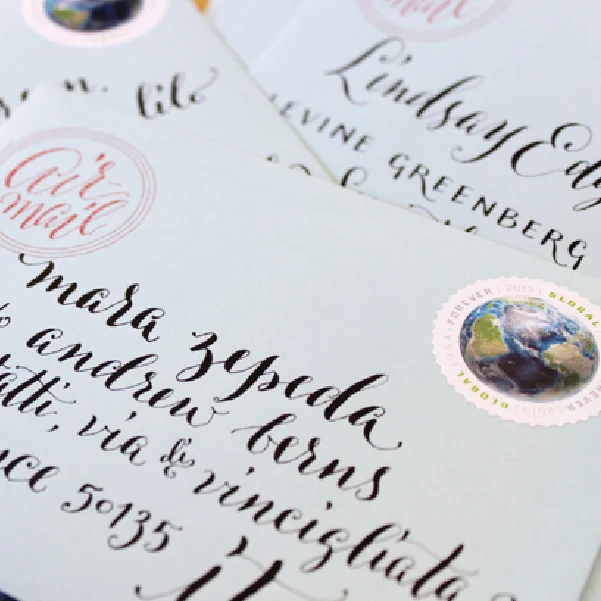 lilo
air
mail
mail
Lindsay
LEVINE GREENBERG
mara zepeda
andrew berns
tatti, via di vincigliata
50135
FOREVER 2013 GLOBAL
FOREVER 2013 GLOBAL